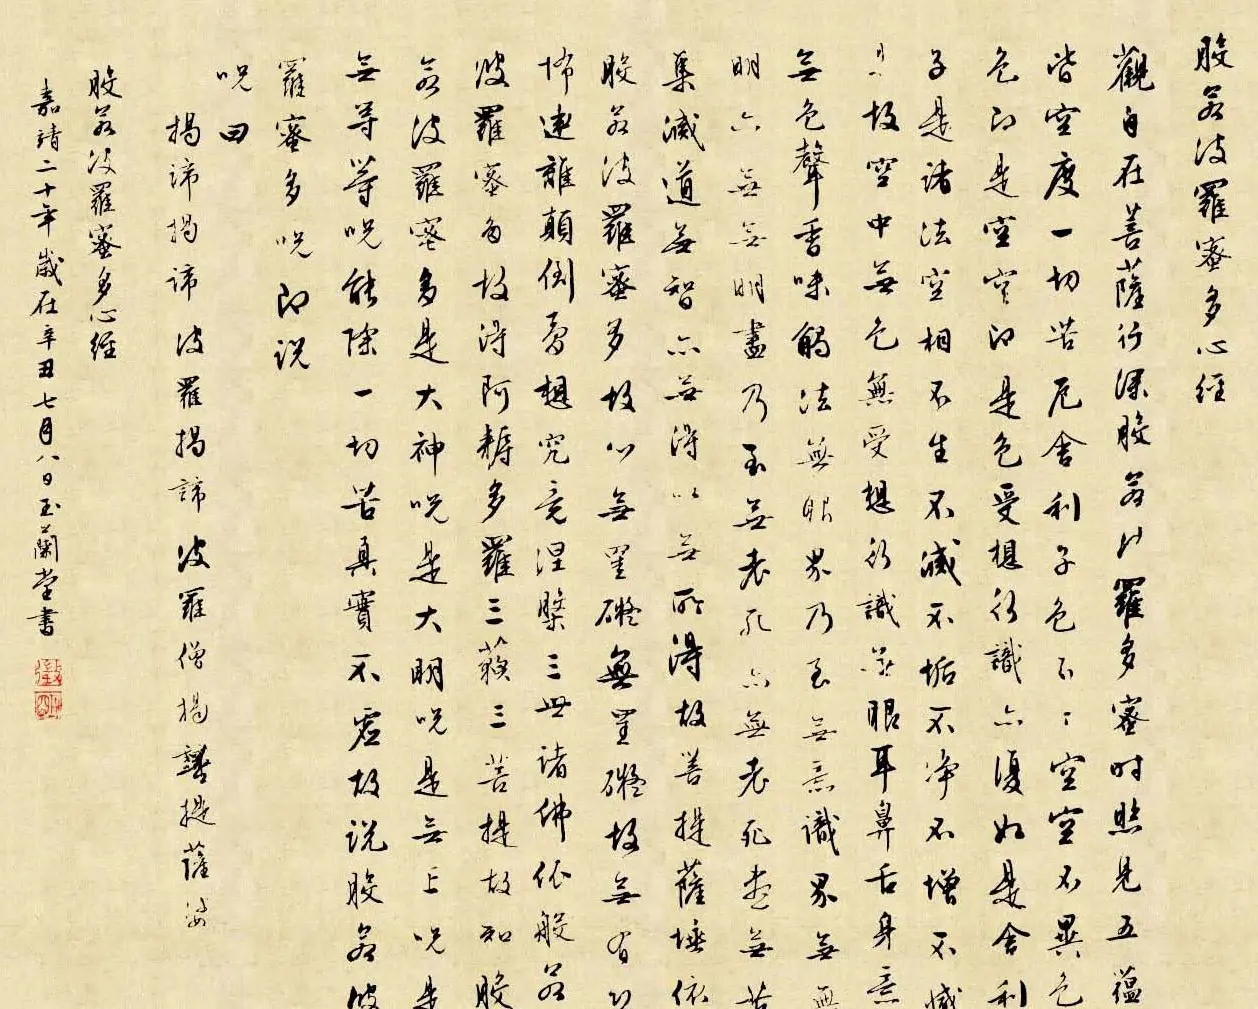 般若波羅蜜多心經
觀自在菩薩行深般若波羅多蜜時照見五蘊
皆空度一切苦厄舍利子色不〻空空不異色
色即是空空即是色受想行識亦復如是舍利
子是諸法空相不生不滅不垢不淨不增不減
是故空中無色無受想行識無眼耳鼻舌身意
無色聲香味觸法無眼界乃至無意識界無無
明亦無無明盡乃至無老死亦無老死盡無苦
集滅道無智亦無得以無所得故菩提薩埵依
般若波羅蜜多故心無罣礙無罣礙故無有恐
怖遠離顛倒夢想究竟涅槃三世諸佛依般若
波羅蜜多故得阿耨多羅三藐三菩提故知般
若波羅蜜多是大神呪是大明呪是無上呪是
無等等呪能除一切苦真實不虛故說般若波
羅蜜多呪即說
呪曰
揭諦揭諦波羅揭諦波羅僧揭諦提薩婆
般若波羅蜜多心經
嘉靖二十年歲在辛丑七月八日玉蘭堂書
徵明